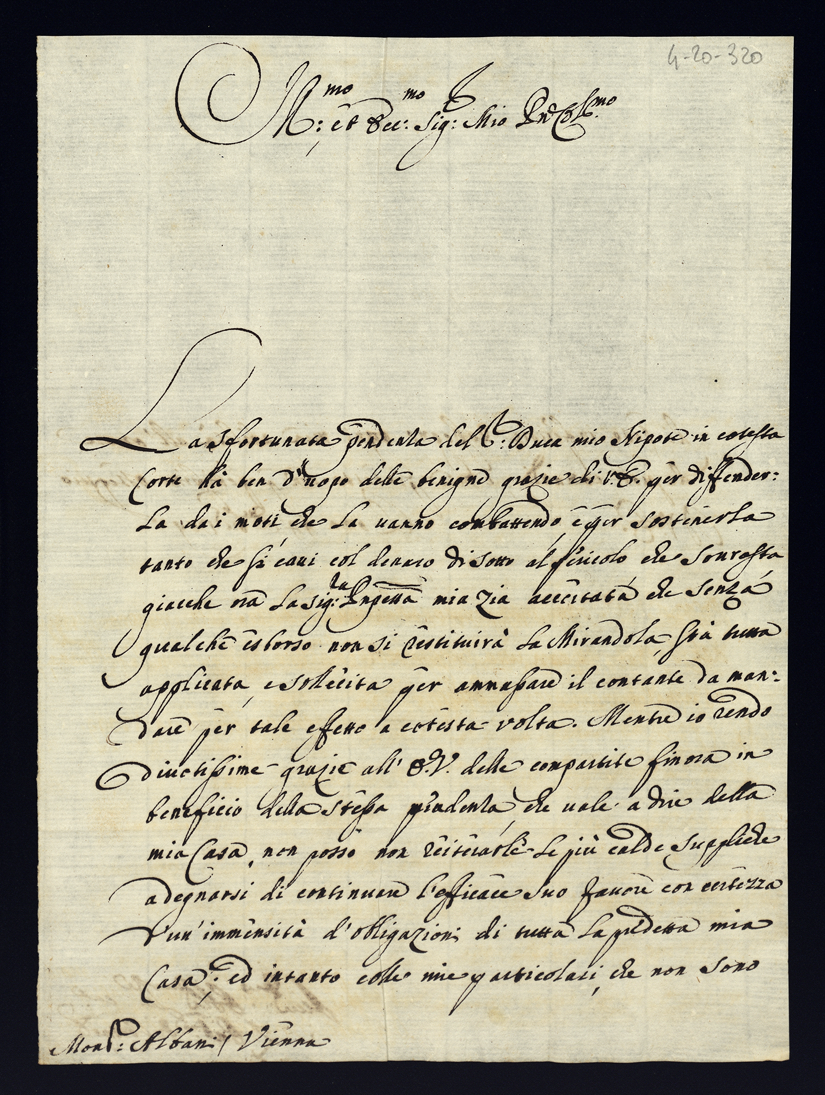 4-20-320
Ill:mo et Ecc:mo Sig:r Mio Pñe Col:mo
La sfortunata pendenza del S.r Duca mio Nipote in cotesta
Corte hà ben d'uopo delle benigne grazie di V.E. per diffender:
la da i moti che la uanno combattendo, e per sostenerla
tanto che si caui col denaro di sotto al pericolo che sourasta
giacche ora la Sig:ra Pnpessa mia Zia accertata che senza
qualche esborso non si restituirà la Mirandola, stà tutta
applicata, e sollecita per ammassare il contante da man:
dare per tale effetto a cotesta volta. Mentre io rendo
diuotissime grazie all' E.V. delle compartite finora in
beneficio della stessa pendenza, che uale a dire della
mia Casa, non posso non reiterarle le più calde suppliche
a degnarsi di continuare l'efficace suo fauore con certezza
d'un' immensità d'obligazioni di tutta la predetta mia
Casa; ed intanto colle mie particolari, che non sono
Mons.r Albani / Vienna